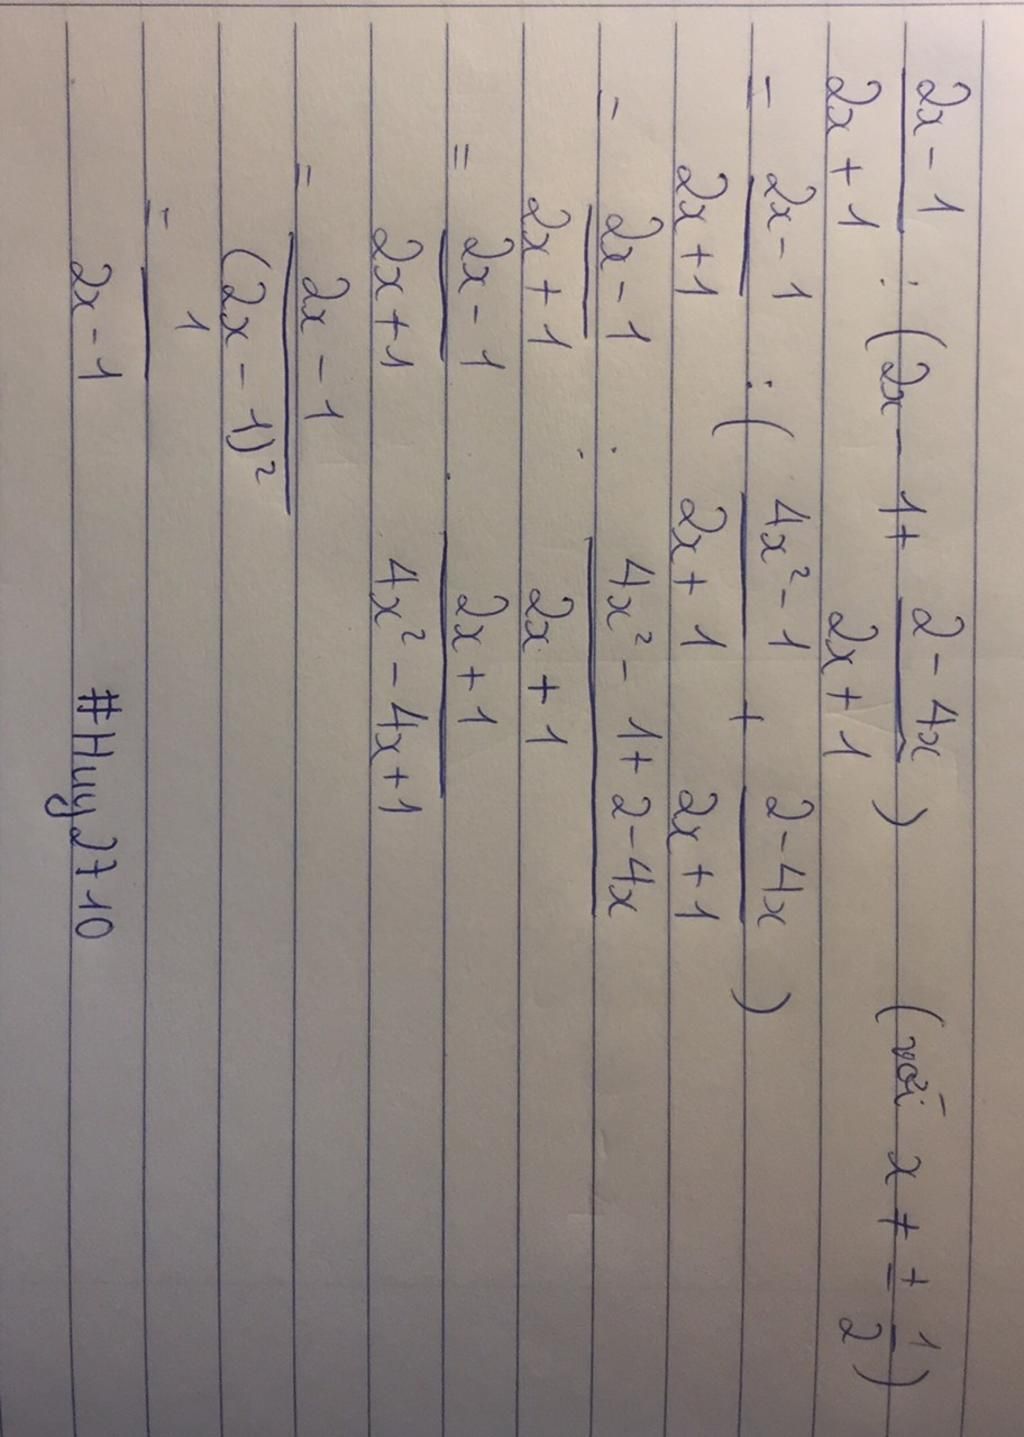 2x - 1 / 2x + 1 : (2x - 1 + 2 - 4x / 2x + 1) (với x ≠ ± 1/2)
= 2x - 1 / 2x + 1 : (4x² - 1 / 2x + 1 + 2 - 4x / 2x + 1)
= 2x - 1 / 2x + 1 : 4x² - 1 + 2 - 4x / 2x + 1
= 2x - 1 / 2x + 1 . 2x + 1 / 4x² - 4x + 1
= 2x - 1 / (2x - 1)²
= 1 / 2x - 1